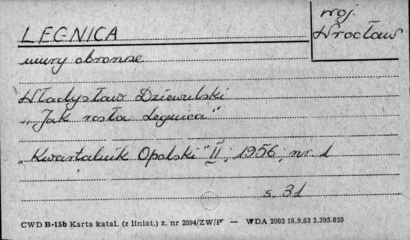 LEGNICA
woj.
Wrocław
mury obronne
Władysław Dziewulski
"Jak rosła Legnica"
"Kwartalnik Opolski" II, 1956, nr. 1
s. 31
CWD B-15b Karta katal. (z liniat.) z. nr 2094/ZW/P — WDA 2002 16.9.63 3.395.020